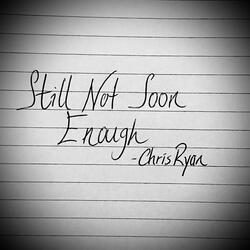 Still Not Soon
Enough
-Chris Ryan